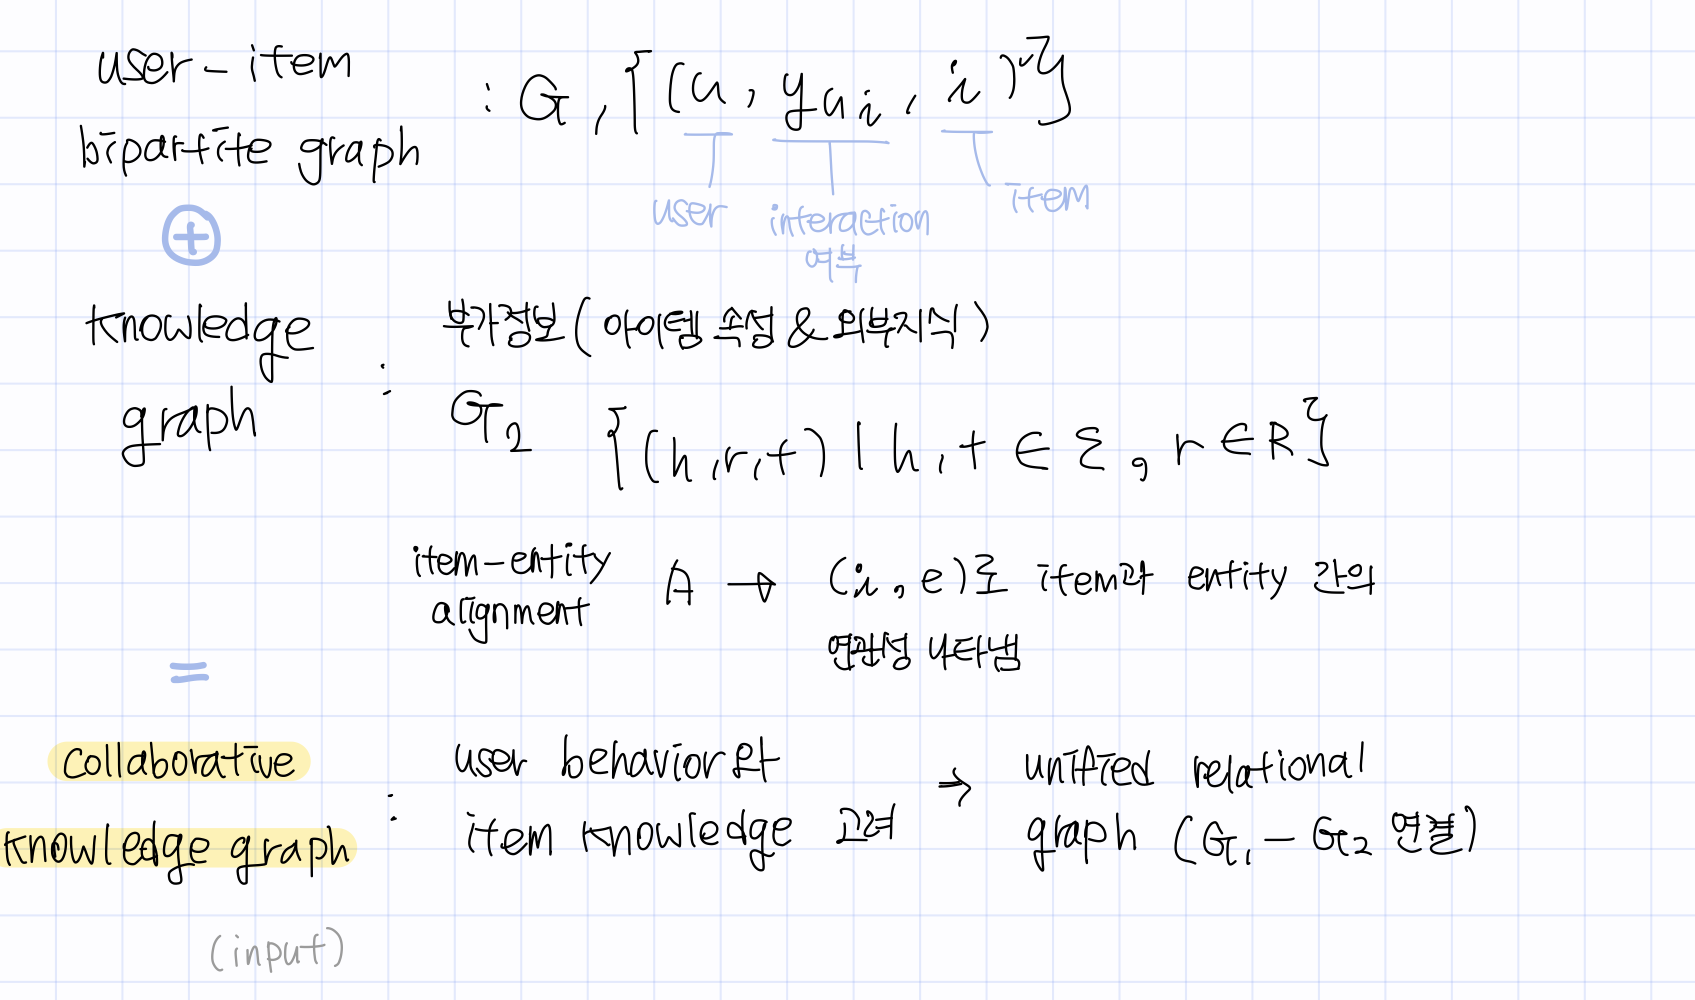 user-item
bipartite graph
: G₁ {(u, y_ui, i)}
user
interaction
여부
item
⊕
knowledge
graph
:
부가정보(아이템 속성 & 외부지식)
G₂ {(h,r,t) | h,t ∈ ℰ, r∈R}
item-entity
alignment
A → (i,e)로 item과 entity 간의
연관성 나타냄
=
collaborative
knowledge graph
:
user behavior와
item knowledge 고려
→ unified relational
graph (G₁ - G₂ 연결)
(input)